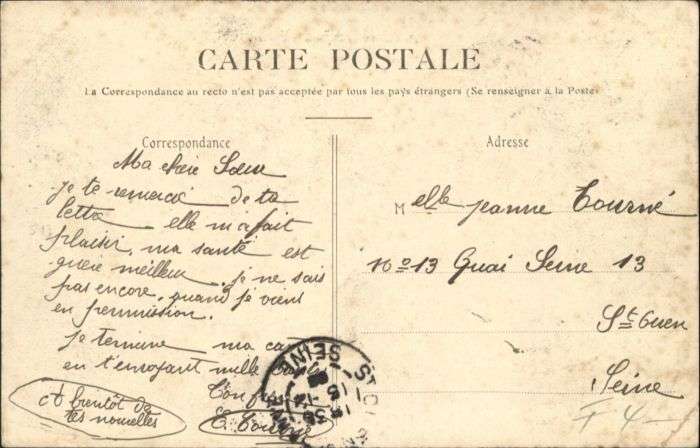 CARTE POSTALE
La Correspondance au recto n'est pas acceptée par tous les pays étrangers (Se renseigner à la Poste)
Correspondance
Adresse
Ma chère Sœur
je te remercie de ta
lettre elle m'a fait
plaisir, ma santé est
guère meilleur. je ne sais
pas encore, quand je viens
en permission.
je termine ma ca
en t'envoyant mille
Ton
E. Tourné
et bientôt de
tes nouvelles
Melle Jeanne Tourné
No 13 Quai Seine 13
St Ouen
Seine
ST OUEN
SEINE